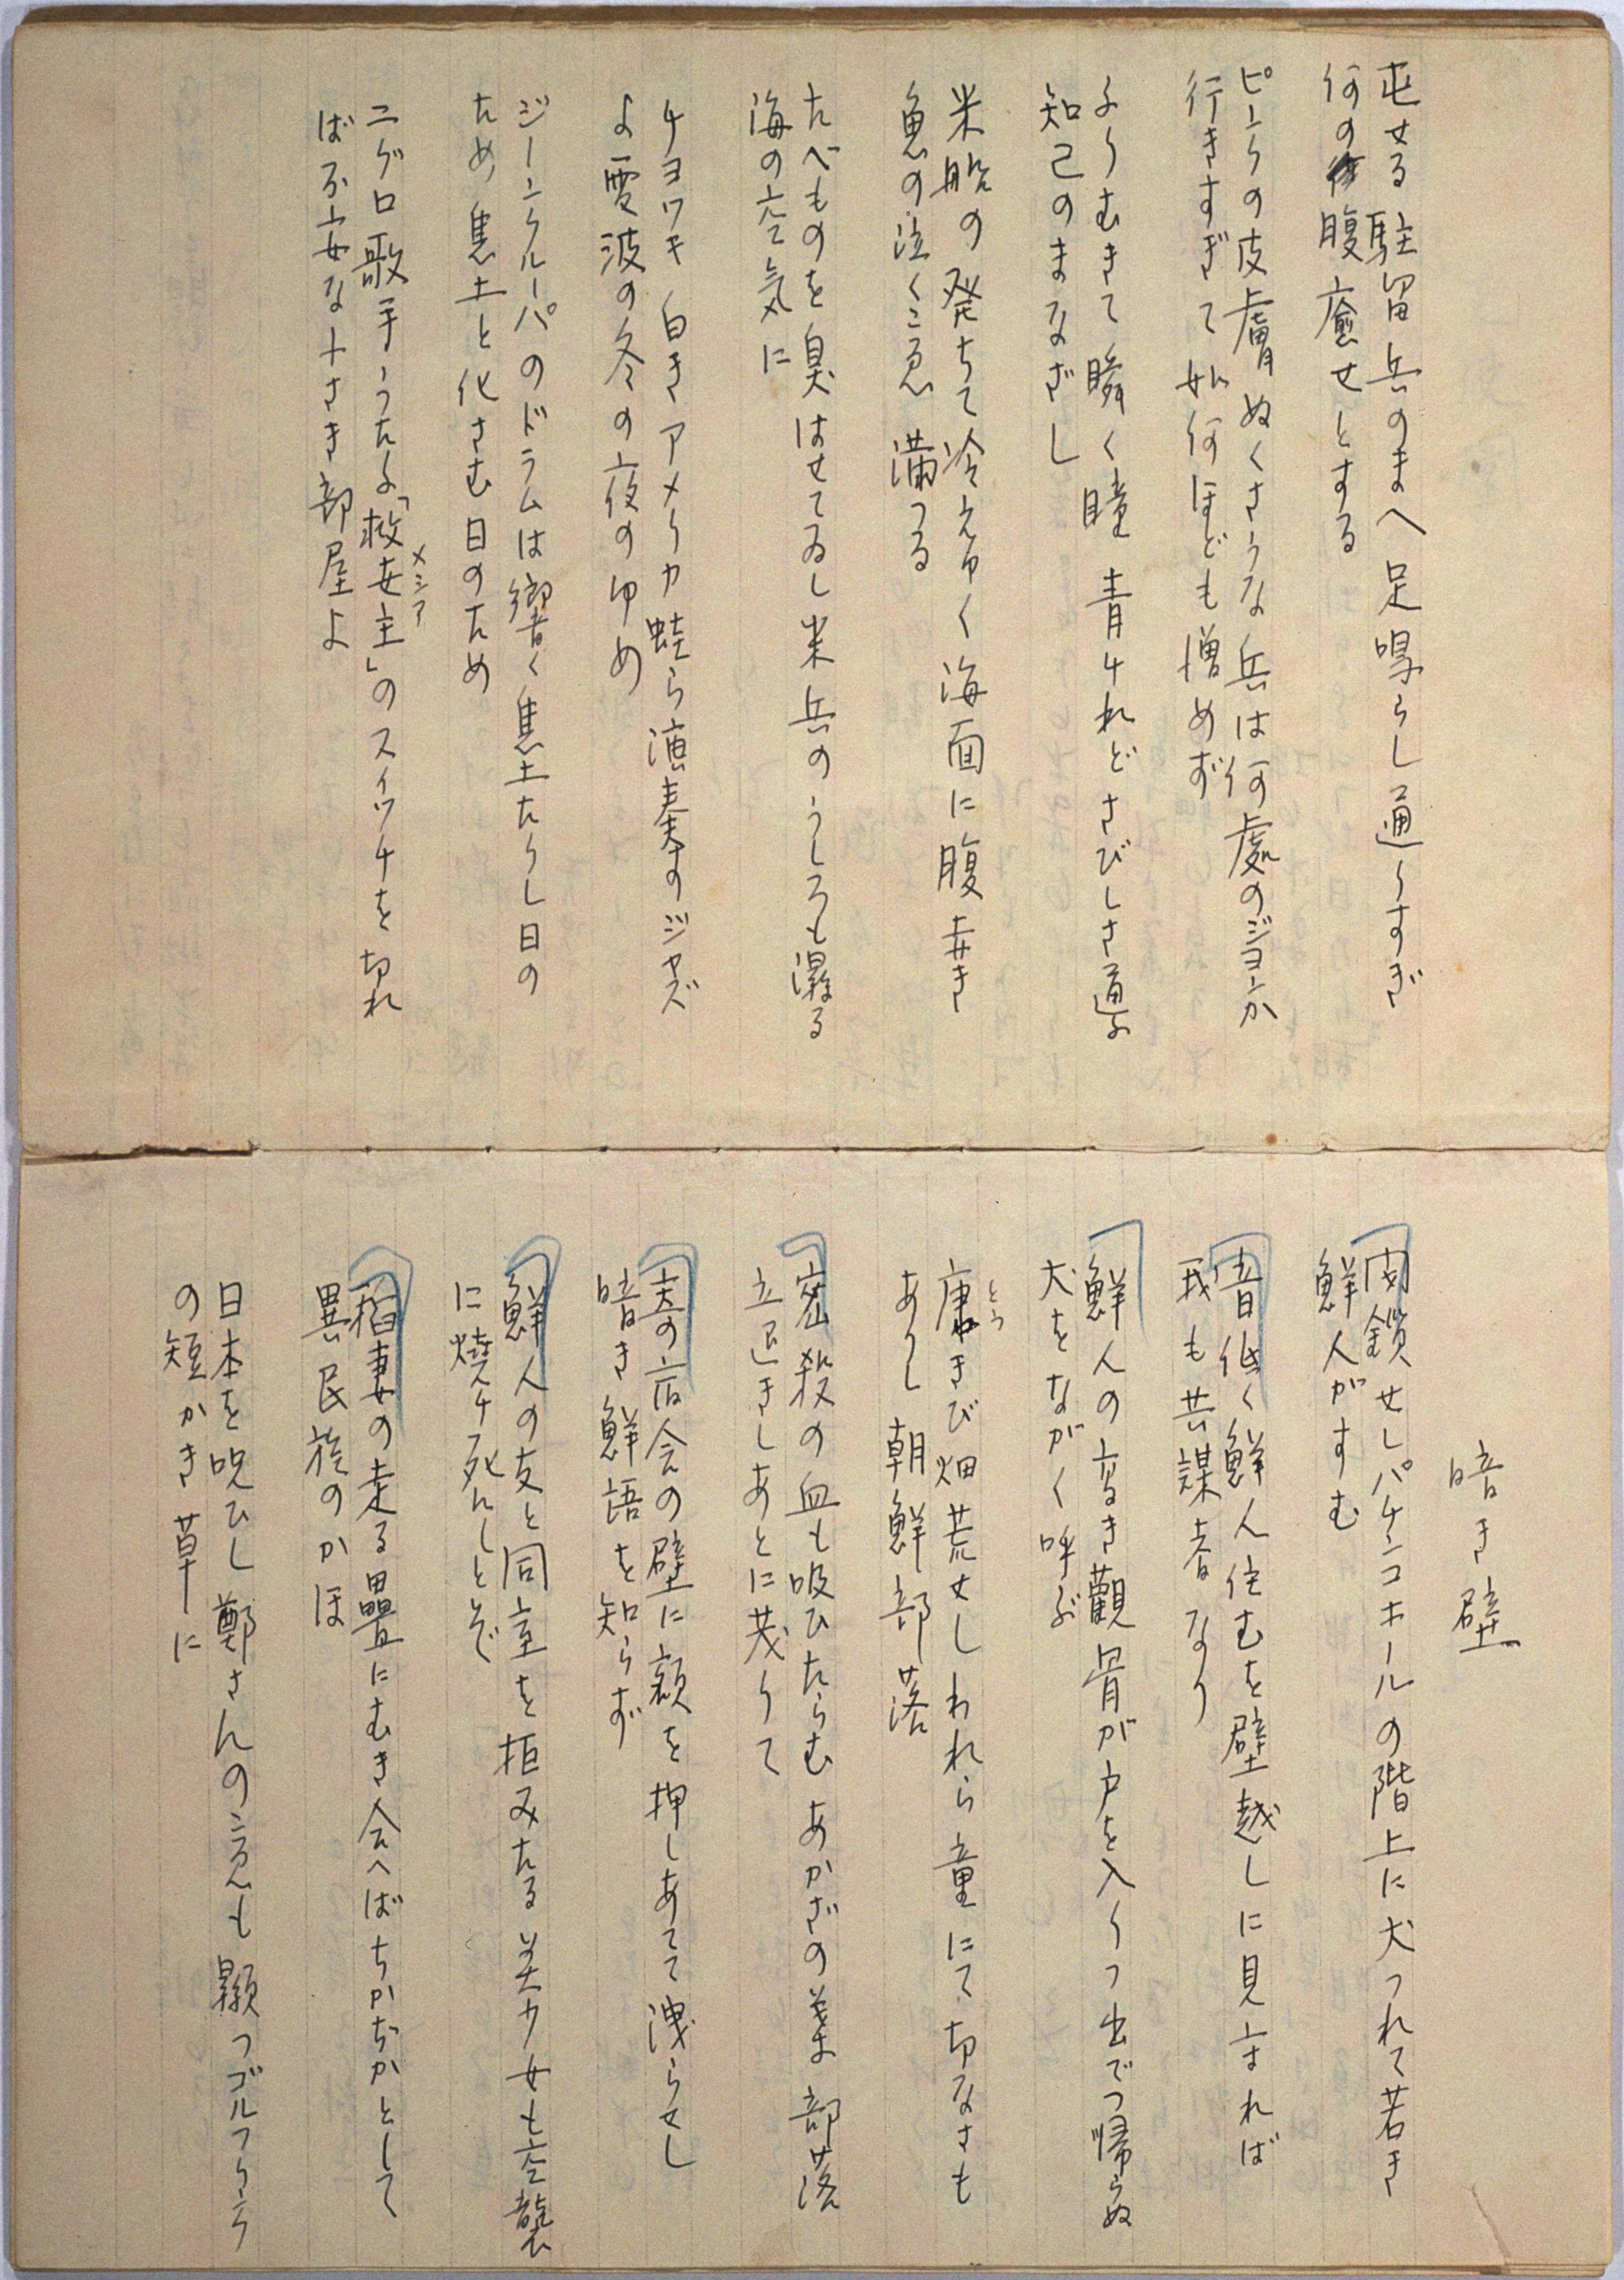 屯せる駐留兵のまへ足鳴らし通りすぎ
何の腹癒せとする
ピンクの皮膚ぬくさうな兵は何處のジヨンか
行きすぎて如何ほども憎めず
ふりむきて瞬く瞳青けれどさびしさ通ふ
知己のまなざし
米船の発ちて冷えゆく海面に腹赤き
魚の泣くこゑ満つる
たべものを臭はせてゐし米兵のうしろも濕る
海の空気に
チヨツキ白きアメリカ蛙ら演奏すのジヤズ
よ電波の冬の夜のゆめ
ジーンクルーパのドラムは響く焦土たりし日の
ため焦土と化さむ日のため
ニグロ歌手うたふ「救世主」のスイツチを切れ
メシア
ば不安な小さき部屋よ
暗き壁
閉鎖せしパチンコホールの階上に犬つれて若き
鮮人がすむ
昔低く鮮人住むを壁越しに見まれば
我も共謀者なり
鮮人の高き觀骨が戸を入りつ出でつ帰らぬ
犬をながく呼ぶ
唐きび畑荒せしわれら童にて切なさも
とう
ありし朝鮮部落
密殺の血も吸ひたらむあかざの葉部落
立退きしあとに茂りて
夫の店会の壁に額を押しあてて洩らせし
暗き鮮語を知らず
鮮人の友と同室を拒みたる美少女も空襲
に燒け死にしとぞ
稲妻の走る疊にむき会へばちかぢかとして
異民族のかほ
日本を呪ひし鄭さんの声も顕つゴルフリンク
の短かき草に